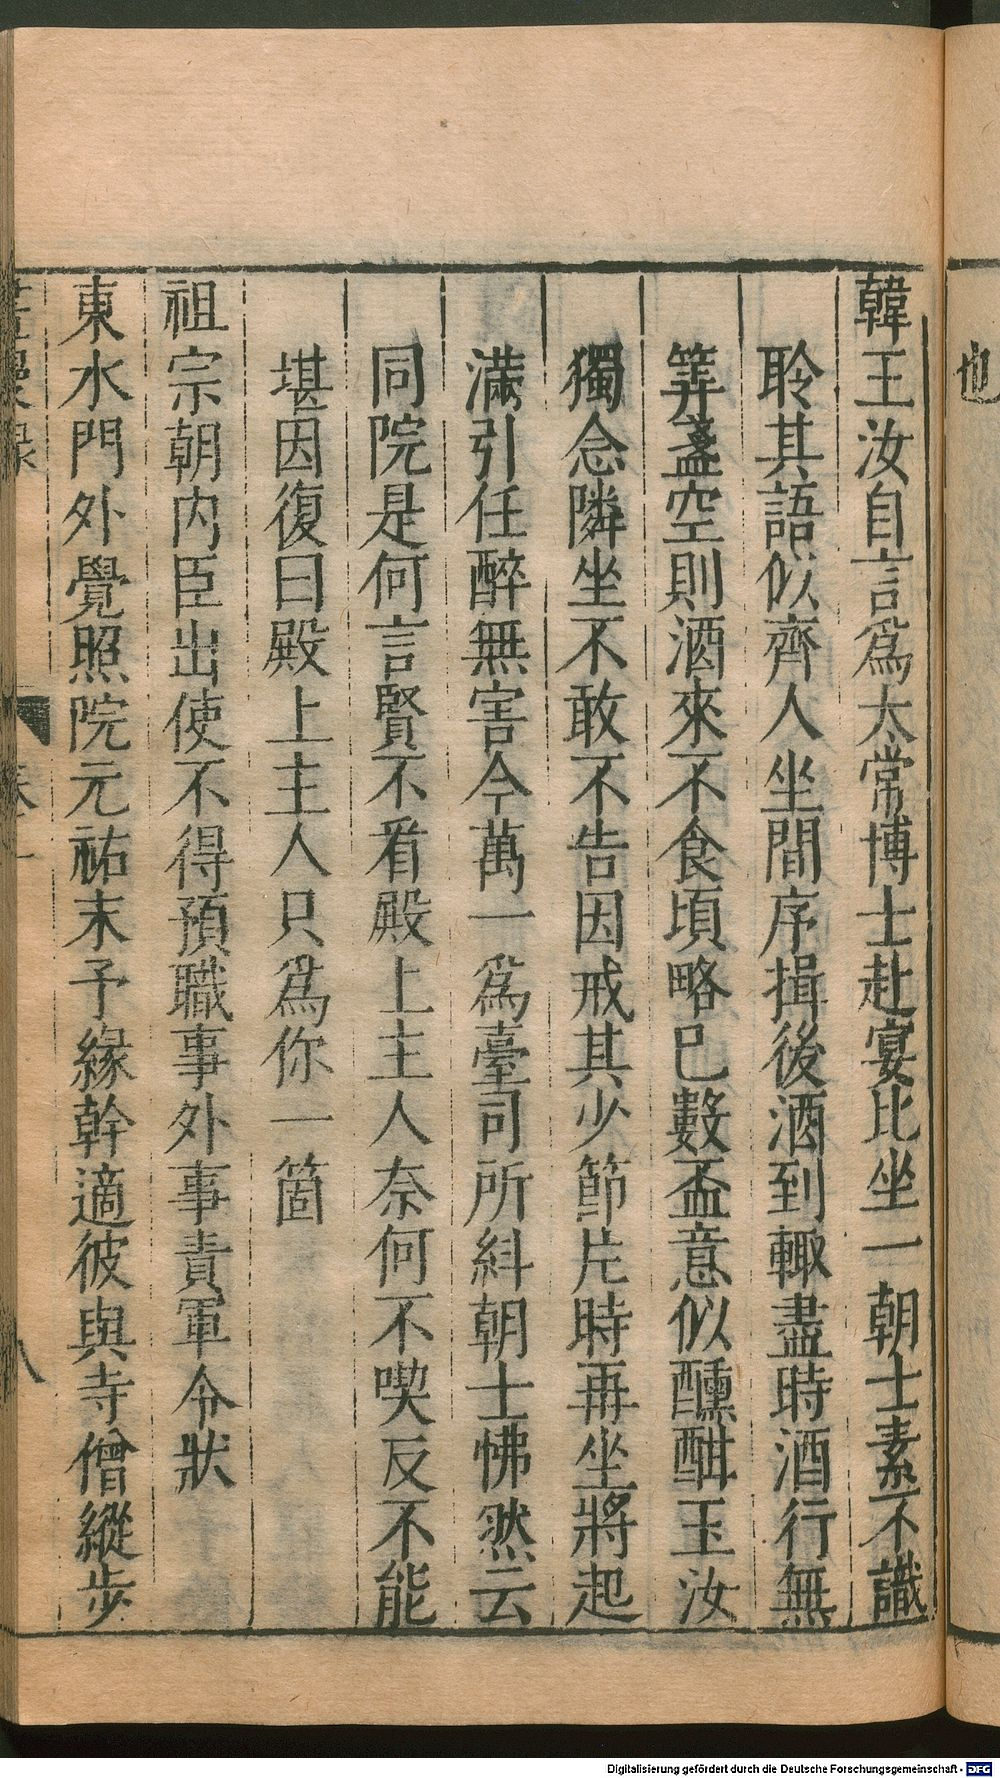 也
韓王汝自言爲太常博士赴宴比坐一朝士素不識
聆其語似齊人坐間序揖後酒到輙盡時酒行無
筭盞空則酒來不食頃略已數盃意似醺酣玉汝
獨念隣坐不敢不告因戒其少節片時再坐將起
滿引任醉無害今萬一爲臺司所糾朝士怫然云
同院是何言賢不看殿上主人奈何不喫反不能
堪因復曰殿上主人只爲你一箇
祖宗朝内臣出使不得預職事外事責軍令狀
東水門外覺照院元祐末予縁幹適彼與寺僧縱步
八
Digitalisierung gefördert durch die Deutsche Forschungsgemeinschaft - DFG